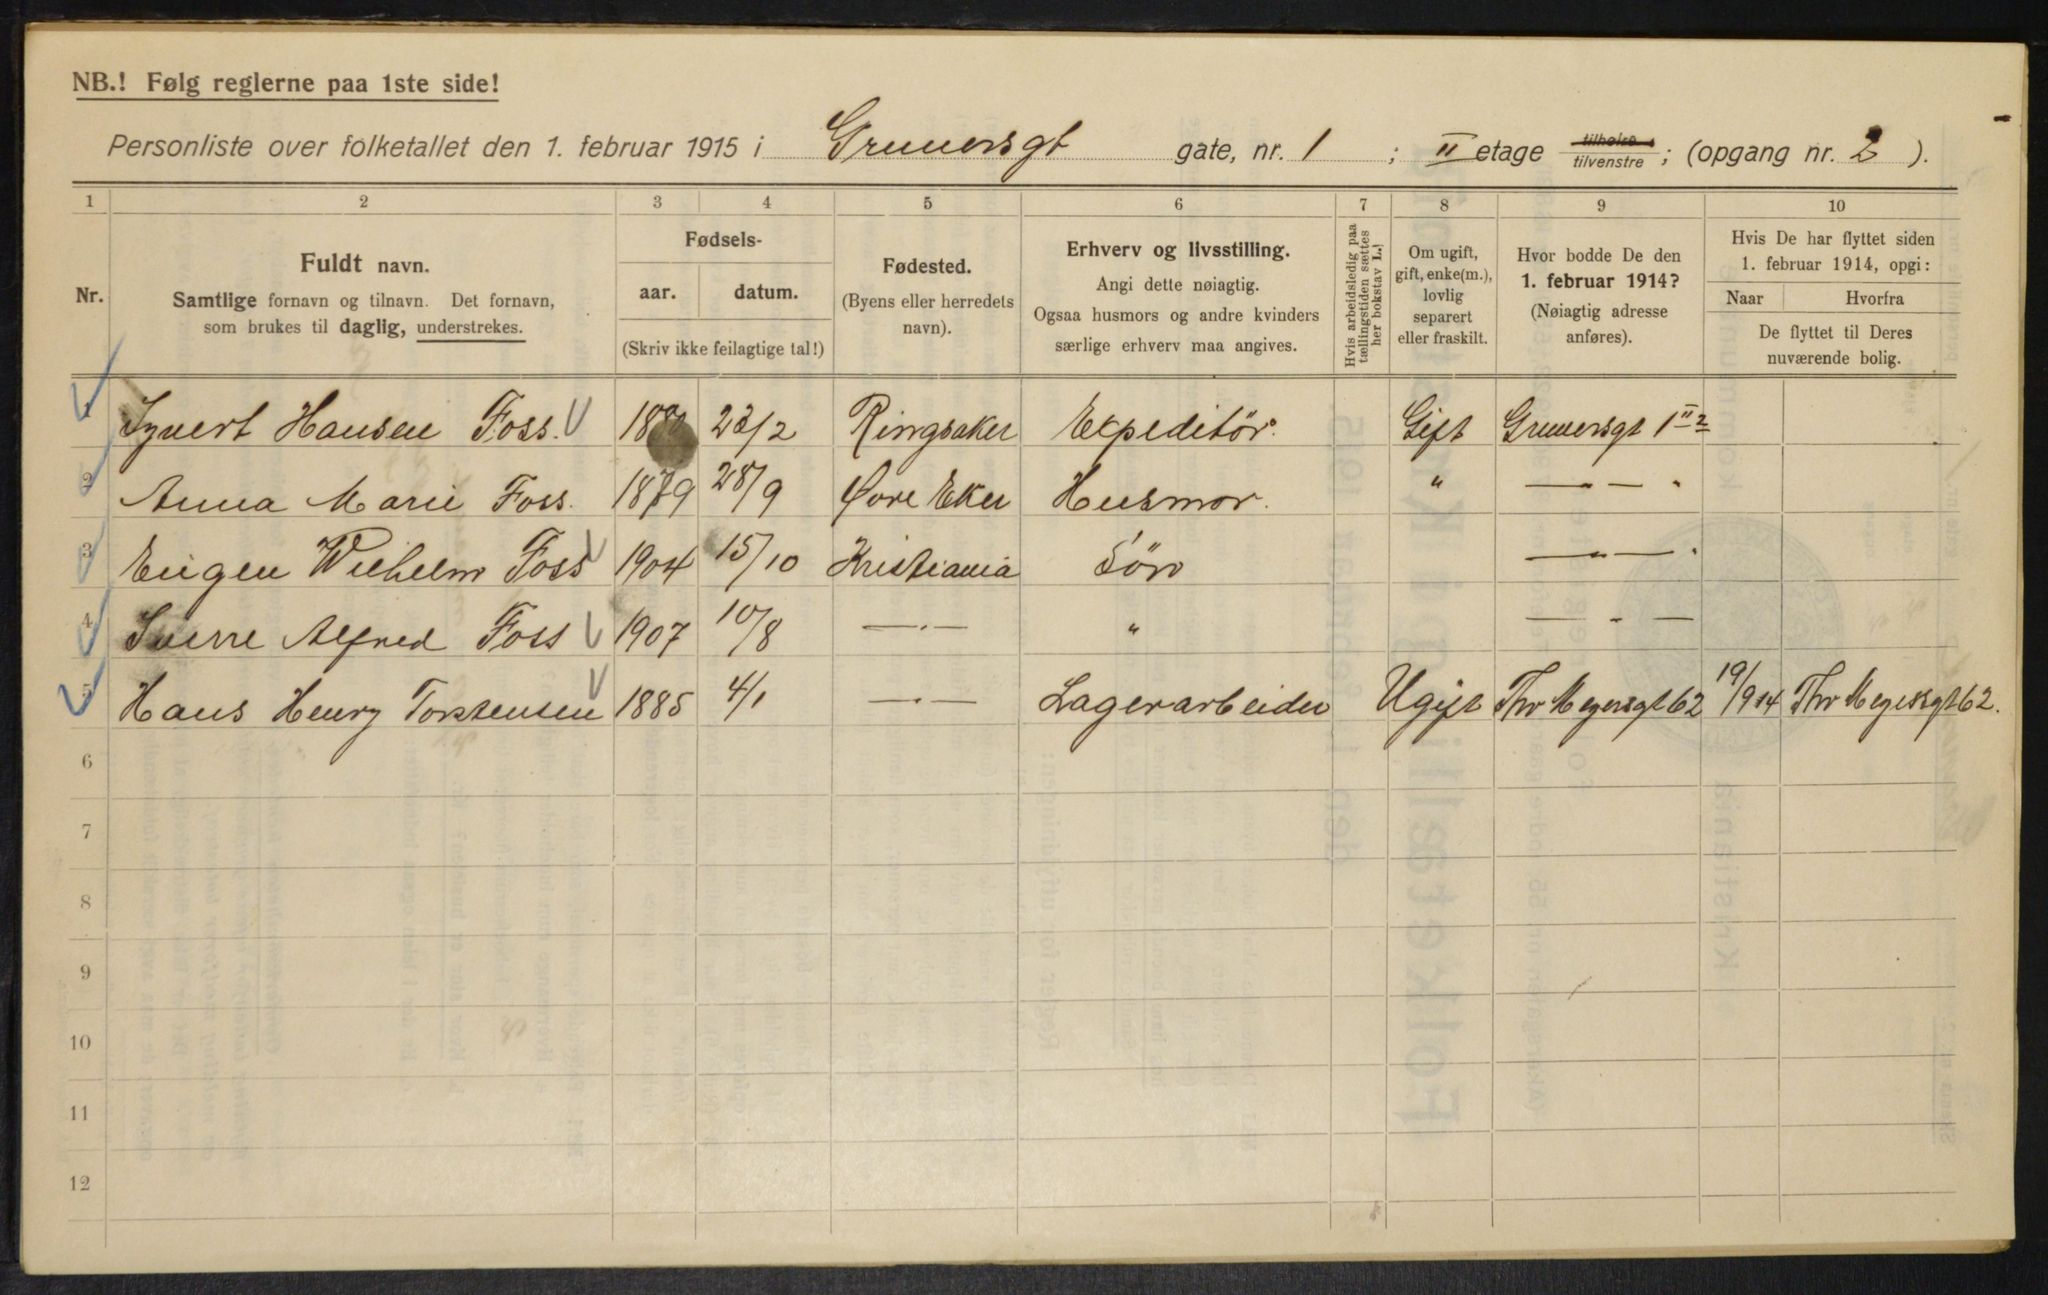 NB.! Følg reglerne paa 1ste side!
Personliste over folketallet den 1. februar 1915 i Grunersgt gate, nr. 1 ; II etage tilhøire tilvenstre ; (opgang nr. 2 ).
1 2 3 4 5 6 7 8 9 10
Nr.
Fuldt navn.
Samtlige fornavn og tilnavn. Det fornavn,
som brukes til daglig, understrekes.
Fødsels-
aar. datum.
(Skriv ikke feilagtige tal!)
Fødested.
(Byens eller herredets
navn).
Erhverv og livsstilling.
Angi dette nøiagtig.
Ogsaa husmors og andre kvinders
særlige erhverv maa angives.
Hvis arbeidsledig paa
tællingstiden sættes
her bokstav L.!
Om ugift,
gift, enke(m.),
lovlig
separert
eller fraskilt.
Hvor bodde De den
1. februar 1914?
(Nøiagtig adresse
anføres).
Hvis De har flyttet siden
1. februar 1914, opgi:
Naar Hvorfra
De flyttet til Deres
nuværende bolig.
1 Syvert Hansen Foss. 23/2 Ringsaker Expeditør. Gift Grunersgt 1 II 2
2 Anna Marie Foss. 1879 28/9 Øvre Eker Husmor. " — " — "
3 Eugen Wilhelm Foss 1904 15/10 Kristiania Søn — " — "
4 Sverre Alfred Foss 1907 10/8 — " — " — " —
5 Hans Henry Torstensen 1885 4/1 — " — Lagerarbeider Ugift Thv Meyersgt 62 19/9 14 Thv Meyersgt 62.
6
7
8
9
10
11
12